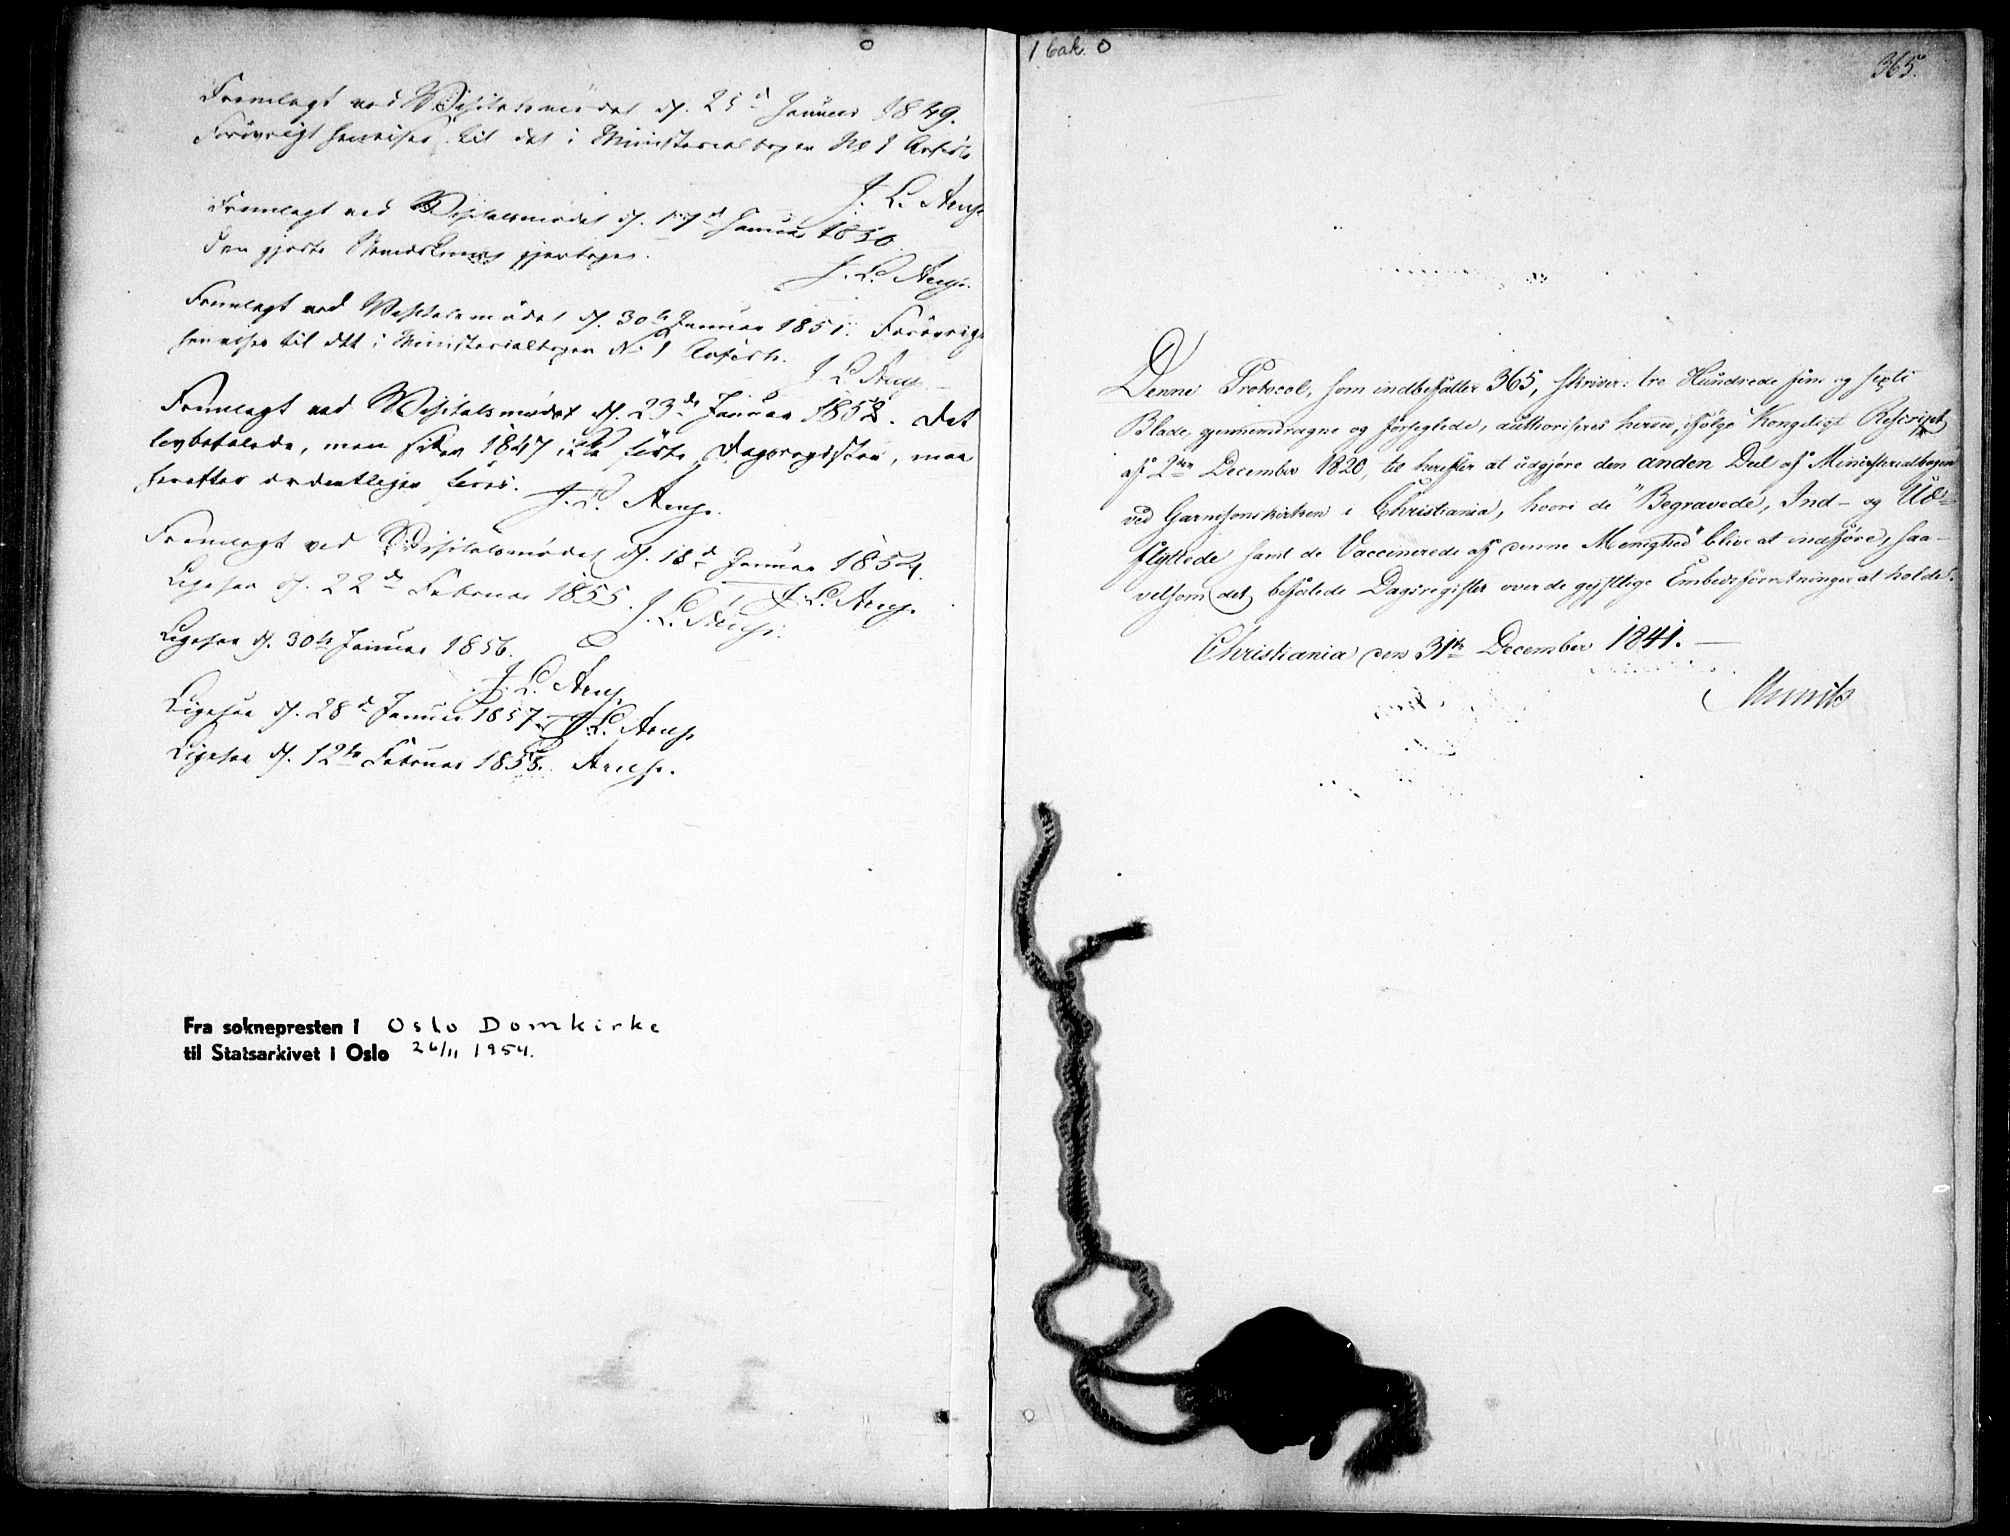 Fremlagt ved Visitatsmødet d. 25d Januar 1849.
Forøvrigt henvises til det i Ministerialbogen No 1 Anførte
J. L. Arup.
Fremlagt ved Visitatsmødet d. 17d Januar 1850.
Den gjorte Bemærkning gjentages.
J. L. Arup.
Fremlagt ved Visitatsmødet d. 30te Januar 1851. Forøvrigt
henvises til det i Ministerialbogen No 1 Anførte.
J. L. Arup.
Fremlagt ved Visitatsmødet d. 23de Januar 1852. Det
lovbefalede, men siden 1847 ikke førte Dagsregister, maa
herefter ordentligen føres.
J. L. Arup.
Fremlagt ved Visitatsmødet d. 18d Januar 1854.
J. L. Arup.
Ligesaa d. 22de Februar 1855. J. L. Arup.
Ligesaa d. 30te Januar 1856.
J. L. Arup.
Ligesaa d. 28d Januar 1857. J. L. Arup
Ligesaa d. 12te Februar 1858. Arup.
Fra soknepresten i Oslo Domkirke
til Statsarkivet i Oslo 26/11 1954.
1 bak. 0
365.
Denne Protocol, som indbefatter 365, skriver: tre Hundrede fem og sexti
Blade, gjennemdragne og forseglede, authoriseres herved, ifølge Kongeligt Rescript
af 2den December 1820, til herefter at udgjøre den anden Deel af Ministerialbogen
ved Garnisonskirken i Christiania, hvori de "Begravede, Ind- og Ud-
flyttede samt de Vaccinerede af denne Menighed" blive at indføre, saa-
velsom det befalede Dagsregister over de geistlige Embedsforretninger at holde.
Christiania den 31te December 1841.